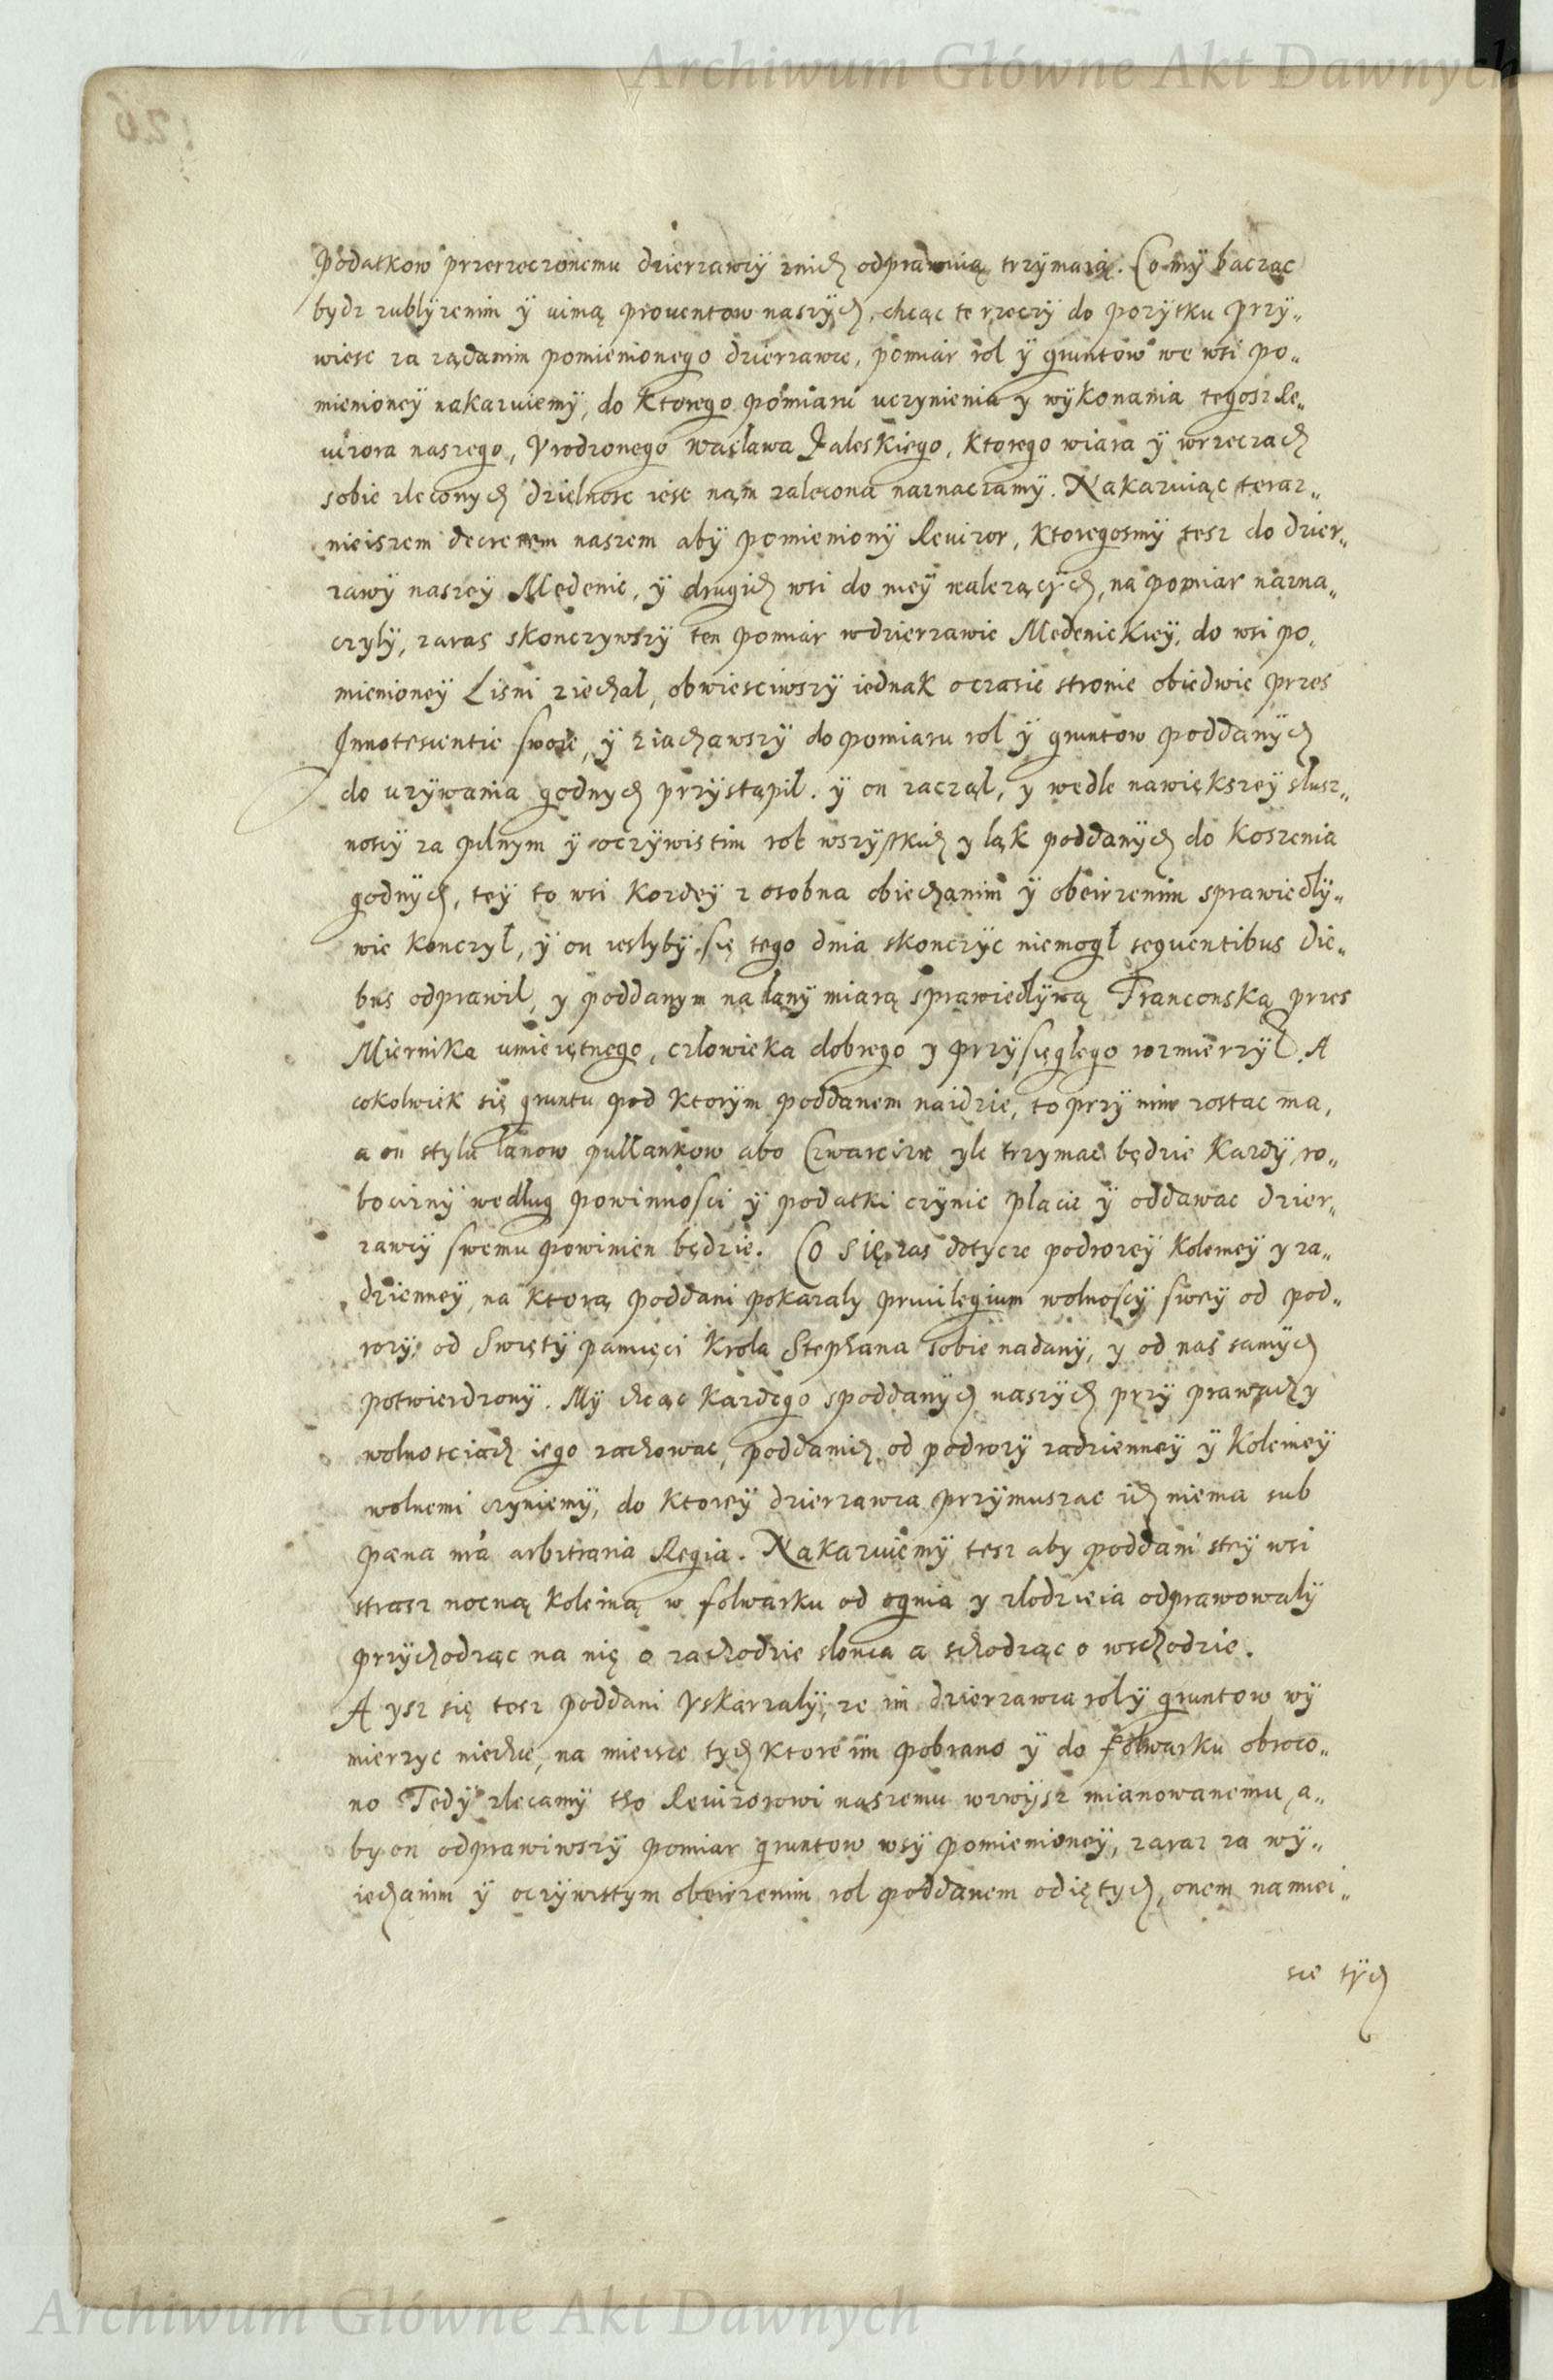 Archiwum Główne Akt Dawnych
Podatkow przerzeczonemu dzierzawcy znich odprawuią trzymaią. Co my bacząc
bydz zubliżenim ÿ uimą prouentow naszÿch, chcąc te rzeczÿ do pozÿtku przÿ„
wiesc za ządanim pomienionego dzierzawce, pomiar rol ÿ gruntow we wsi po„
mienioneÿ nakazuiemÿ, do ktorego pomiaru uczynienia y wÿkonania tegosz Re„
uizora naszego, Vrodzonego Wacława Zaleskiego, ktorego wiara ÿ wrzeczach
sobie zleconych dzielnosc iest nąm zalecona naznaczamÿ. Nakazuiąc teraz„
nieiszem decretem naszem abÿ pomienionÿ Reuizor, ktoregosmÿ tesz do dzier„
zawÿ naszeÿ Medenic, ÿ drugich wsi do nieÿ nalezącÿch, na pomiar nazna„
czÿlÿ, zaras skonczywszÿ ten pomiar wdzierzawie Medenickieÿ, do wsi po„
mienioneÿ Lisni ziechal, obwiesciwszÿ iednak oczasie stronie obiedwie przes
Innotescentie swoie, ÿ ziachawszÿ do pomiaru rol ÿ gruntow poddanÿch
do uzÿwania godnych przÿstąpil. ÿ on zaczął, y wedle nawiększeÿ slusz„
noscÿ za pilnym ÿ oczÿwistim rol wszÿstkich y ląk poddanÿch do koszenia
godnÿch, teÿ to wsi kozdeÿ z osobna obiechanim ÿ obeirzenim sprawiedlÿ„
wie konczył, ÿ on ieslybÿ się tego dnia skonczÿc niemogł sequentibus die„
bus odprawil, y poddanym na lanÿ miarą sprawiedlÿwą Franconską przes
Miernika umieiętnego, człowieka dobrego y przÿsięgłego rozmierzÿl. A
cokolwiek się gruntu pod ktorÿm poddanem naidzie, to przÿ nim zostac ma,
a on stylu łanow pułłankow abo Czwarcizn yle trzymac będzie kazdÿ, ro„
bocizny według powinnosci ÿ podatki czÿnic placic ÿ oddawac dzier„
zawcÿ swemu powinien będzie. Co się zas dotycze podwozeÿ kolemeÿ y za„
dzienneÿ, na ktorą poddani pokazaly priuilegium wolnoscÿ sweÿ od pod„
wozÿ, od Swiętÿ pamięci Krola Stephana sobie nadanÿ, y od nas samÿch
potwierdzonÿ. Mÿ chcąc kazdego spoddanÿch naszÿch przÿ prawach y
wolnosciach iego zachowac, poddanich od podwozÿ zadzienneÿ ÿ koleineÿ
wolnemi czyniemÿ, do ktoreÿ dzierzawca przÿmuszac ich niema sub
pæna nrã arbitraria Regia. Nakazuiemÿ tesz aby poddani steÿ wsi
strasz nocną koleiną w folwarku od ognia y zlodzieia odprawowalÿ
przÿchodząc na nię o zachodzie slonca a schodząc o wschodzie.
A ysz się tesz poddani Vskarzalÿ, ze im dzierzawca rol ÿ gruntow wÿ
mierzyc niechce, na mieisce tÿch ktore im pobrano ÿ do folwarku obroco„
no Tedÿ zlecamÿ tho Reuizorowi naszemu wzwÿsz mianowanemu, a„
by on odprawiwszÿ pomiar gruntow wsÿ pomienioneÿ, zaraz za wÿ„
iechanim ÿ oczÿwistym obeirzenim rol poddanem odiętych, onem na miei„
sce tÿch
Archiwum Główne Akt Dawnych